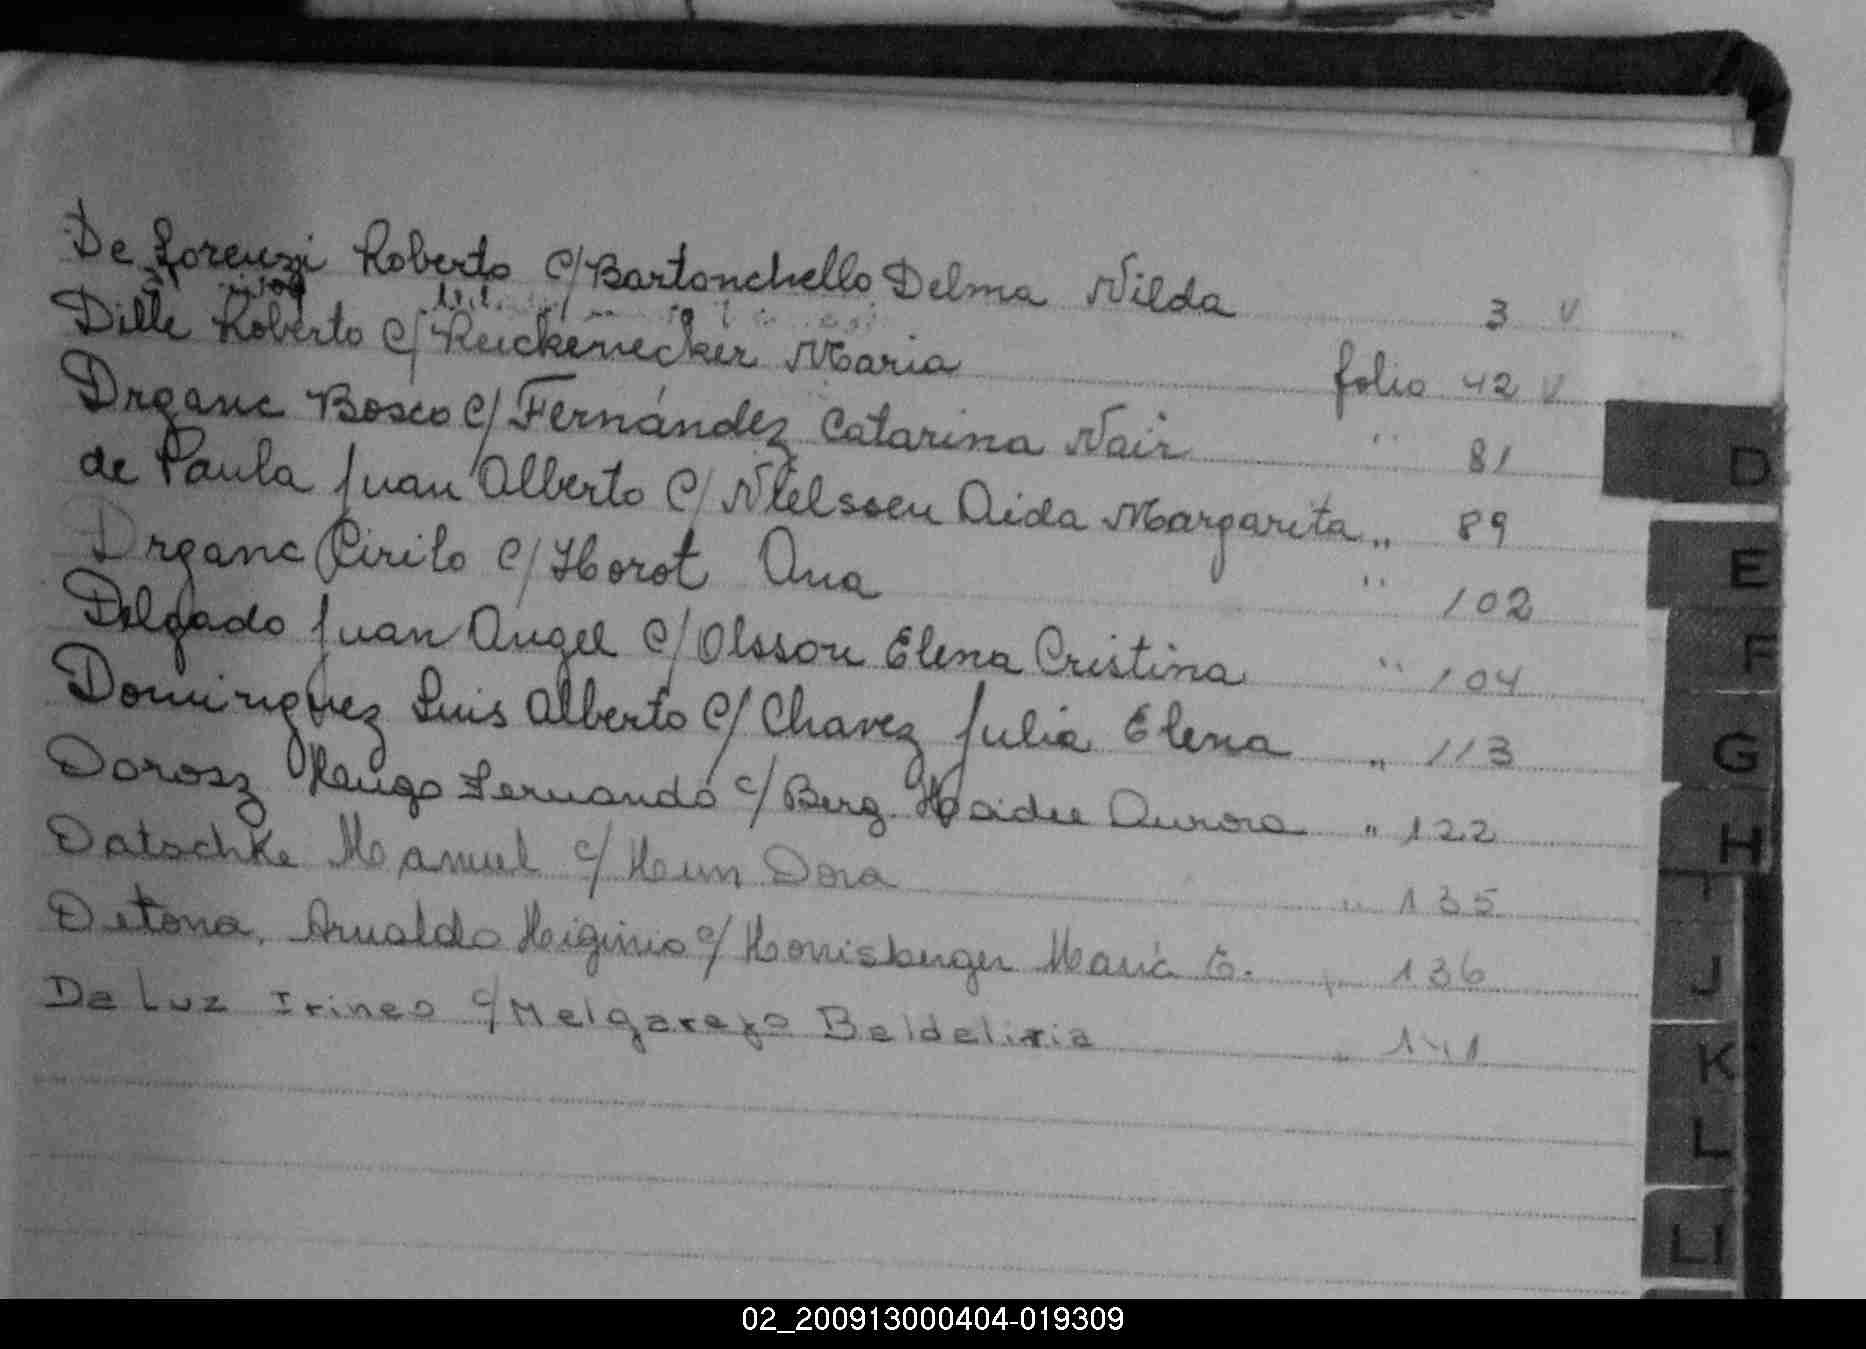 De Lorenzi Roberto c/ Bartonchello Delma Nilda 3 v
Dille Roberto c/ Reickenecker Maria folio 42 v
Drganc Bosco c/ Fernández Catarina Nair " 81
de Paula Juan Alberto c/ Nielsoen Aida Margarita " 89
Drganc Cirilo c/ Horot Ana " 102
Delgado Juan Angel c/ Olsson Elena Cristina " 104
Dominguez Luis Alberto c/ Chavez Julia Elena " 113
Dorosz Hugo Fernando c/ Berg Haidee Aurora " 122
Datschke Manuel c/ Hein Dora " 135
Detona, Arnaldo Higinio c/ Honisberger Maria E. " 136
Da Luz Irineo c/ Melgarejo Beldeliria " 141
D
E
F
G
H
I
J
K
L
Ll
02_200913000404-019309